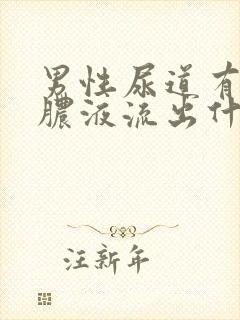 男性尿道有
脓液流出什
汪新年